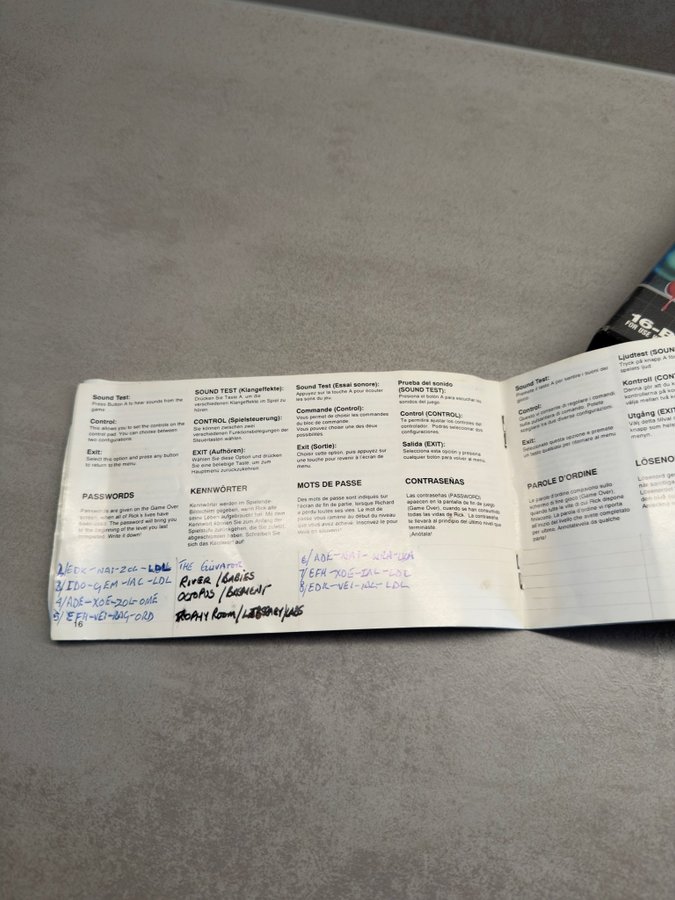 Sound Test:
Press Button A to hear sounds from the
game
Control:
This allows you to set the controls on the
control pad. You can choose between
two configurations.
Exit:
Select this option and press any button
to return to the menu.
PASSWORDS
Passwords are given on the Game Over
screen, when all of Rick's lives have
been used. The password will bring you
to the beginning of the level you last
Write it down!
SOUND TEST (Klangeffekte):
Drücken Sie Taste A, um die
verschiedenen Klangeffekte im Spiel zu
hören.
CONTROL (Spielsteuerung):
Sie können zwischen zwei
verschiedenen Funktionsbelegungen der
Steuertasten wählen.
EXIT (Aufhören):
Wählen Sie diese Option und drücken
Sie eine beliebige Taste, um zum
Hauptmenü zurückzukehren
KENNWÖRTER
Kennwörter werden im Spielende-
Bildschirm gegeben, wenn Rick alle
seine Leben aufgebraucht hat. Mit dem
Kennwort können Sie zum Anfang der
Spielstufe zurückgehen, die Sie zuletzt
abgeschlossen haben. Schreiben Sie
sich das Kennwort auf!
Sound Test (Essai sonore):
Appuyez sur la touche A pour écouter
les sons du jeu.
Commande (Control):
Vous permet de choisir les commandes
du bloc de commande
Vous pouvez choisir une des deux
possibilités.
Exit (Sortie):
Choisir cette option, puis appuyez sur
une touche pour revenir à l'écran de
menu.
MOTS DE PASSE
Des mots de passe sont indiqués sur
l'écran de fin de partie, lorsque Richard
a perdu toutes ses vies. Le mot de
passe vous ramène au début du niveau
que vous avez achevé. Inscrivez-le pour
vous en souvenir!
Prueba del sonido
(SOUND TEST):
Presiona el botón A para escuchar los
sonidos del juego.
Control (CONTROL):
Te permite ajustar los controles del
controlador. Podrás seleccionar dos
configuraciones.
Salida (EXIT):
Selecciona esta opción y presiona
cualquier botón para volver al menú.
CONTRASEÑAS
Las contraseñas (PASSWORD)
aparecen en la pantalla de fin de juego
(Game Over), cuando se han consumido
todas las vidas de Rick. La contraseña
te llevará al principio del último nivel que
terminaste.
¡Anótala!
2/EDK-NAI-ZOL-LDL THE ELEVATOR
3/IDO-GEM-IAC-LDL RIVER/BABIES
4/ADE-XOE-ZOL-OME OCTOPUS/
5/EFH-VEI-RAG-ORD TROPHY ROOM/LIBRARY/LABS
6/ADE-NAI-
7/EFH-XOE-IAL-LDL
8/EDK-VEI-IAL-LDL
16
Sound Test:
Premete il tasto A per sentire i suoni del
gioco.
Control:
Questo vi consente di regolare i comandi
sulla pulsantiera di comando. Potete
scegliere tra due diverse configurazioni.
Exit:
Selezionate questa opzione e premete
un tasto qualsiasi per ritornare al menu.
PAROLE D'ORDINE
Le parole d'ordine compaiono sullo
schermo di fine gioco (Game Over),
quando tutte le vite di cui Rick dispone
finiscono. La parola d'ordine vi riporta
all'inizio del livello che avete completato
per ultimo. Annotatevela da qualche
parte!
Ljudtest (SOUN
Tryck på knapp A för
spelets ljud
Kontroll (CON
Denna gör att du k
kontrollerna på
välja mellan två
Utgång (EXIT
Välj detta
knapp som helst
menyn.
LÖSENO
16-B
FOR USE